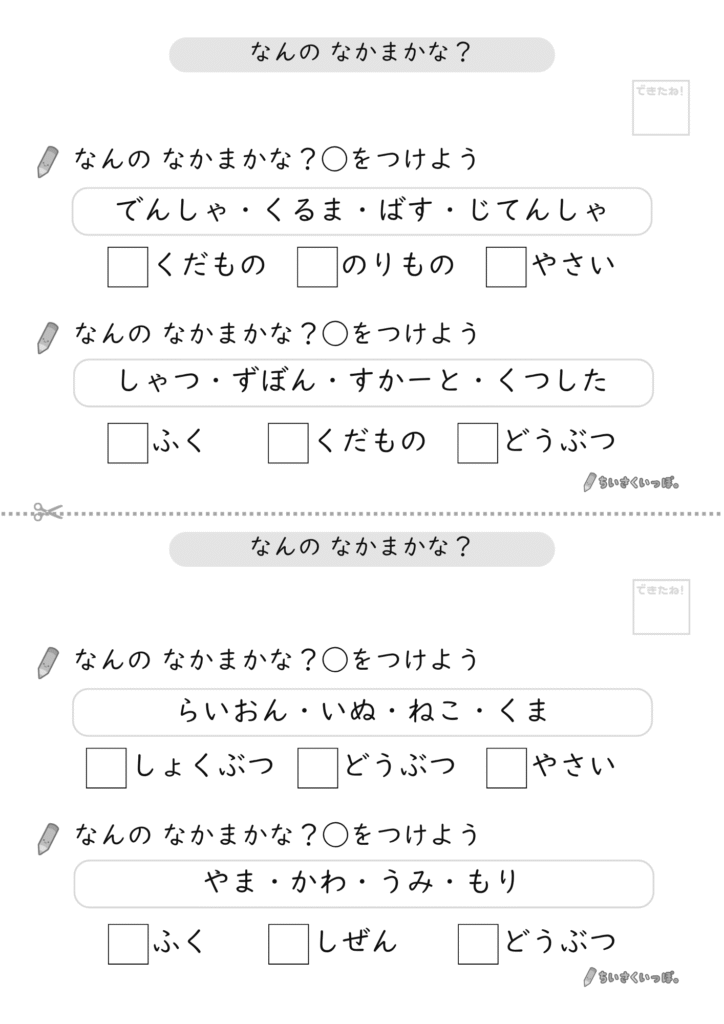 なんの なかまかな？
できたね！
なんの なかまかな？◯をつけよう
でんしゃ・くるま・ばす・じてんしゃ
くだもの のりもの やさい
なんの なかまかな？◯をつけよう
しゃつ・ずぼん・すかーと・くつした
ふく くだもの どうぶつ
ちいさくいっぽ。
なんの なかまかな？
できたね！
なんの なかまかな？◯をつけよう
らいおん・いぬ・ねこ・くま
しょくぶつ どうぶつ やさい
なんの なかまかな？◯をつけよう
やま・かわ・うみ・もり
ふく しぜん どうぶつ
ちいさくいっぽ。